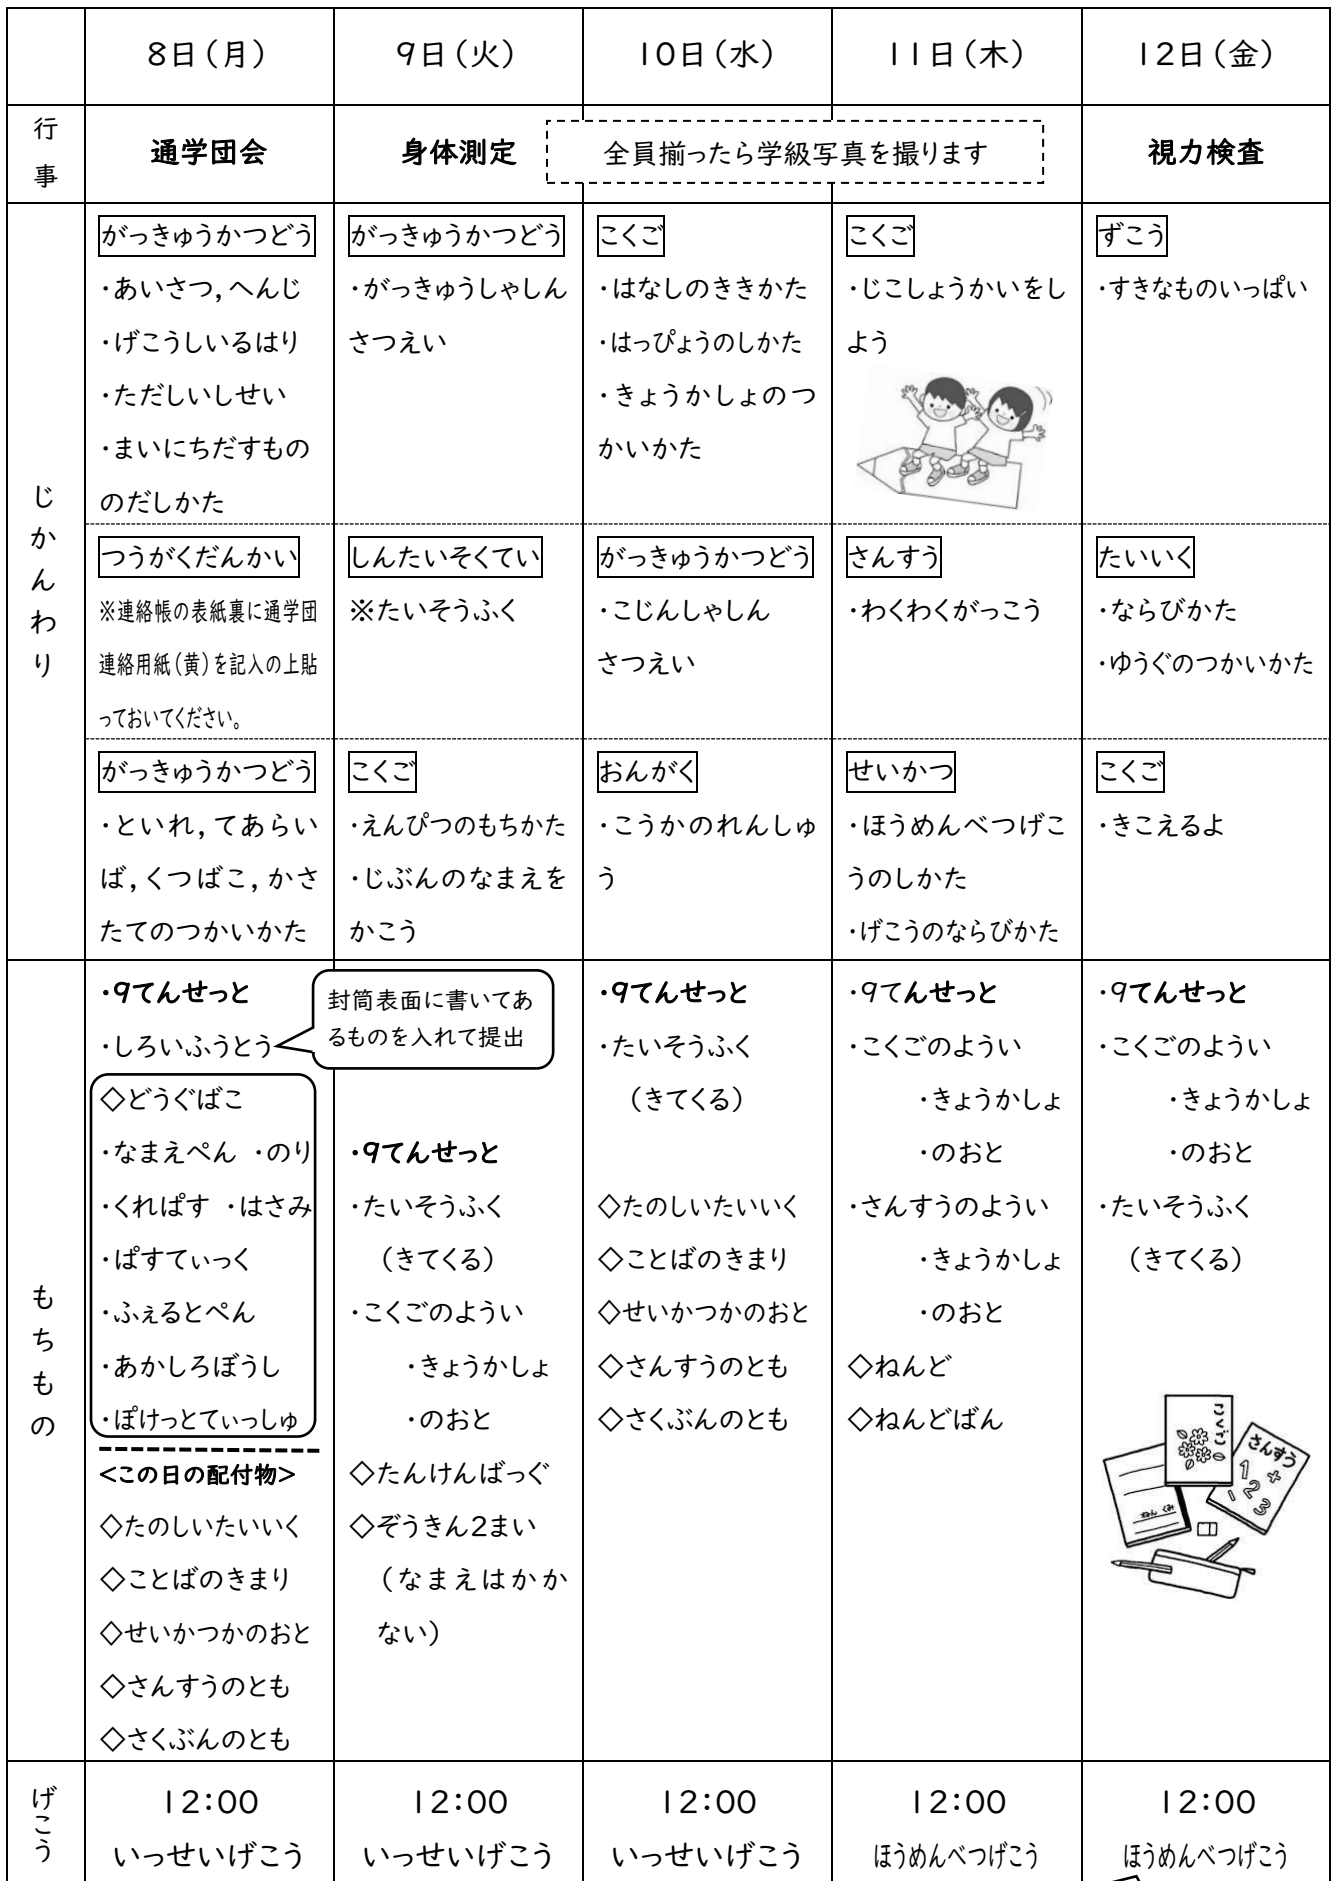 8日(月)
9日(火)
10日(水)
11日(木)
12日(金)
行事
通学団会
身体測定
全員揃ったら学級写真を撮ります
視力検査
じかんわり
がっきゅうかつどう
・あいさつ,へんじ
・げこうしいるはり
・ただしいしせい
・まいにちだすもの
のだしかた
がっきゅうかつどう
・がっきゅうしゃしん
さつえい
こくご
・はなしのききかた
・はっぴょうのしかた
・きょうかしょのつ
かいかた
こくご
・じこしょうかいをし
よう
ずこう
・すきなものいっぱい
つうがくだんかい
※連絡帳の表紙裏に通学団
連絡用紙(黄)を記入の上貼
っておいてください。
しんたいそくてい
※たいそうふく
がっきゅうかつどう
・こじんしゃしん
さつえい
さんすう
・わくわくがっこう
たいいく
・ならびかた
・ゆうぐのつかいかた
がっきゅうかつどう
・といれ,てあらい
ば,くつばこ,かさ
たてのつかいかた
こくご
・えんぴつのもちかた
・じぶんのなまえを
かこう
おんがく
・こうかのれんしゅ
う
せいかつ
・ほうめんべつげこ
うのしかた
・げこうのならびかた
こくご
・きこえるよ
もちもの
・9てんせっと
・しろいふうとう
封筒表面に書いてあ
るものを入れて提出
◇どうぐばこ
・なまえぺん ・のり
・くれぱす ・はさみ
・ぱすてぃっく
・ふぇるとぺん
・あかしろぼうし
・ぽけっとてぃっしゅ
<この日の配付物>
◇たのしいたいいく
◇ことばのきまり
◇せいかつかのおと
◇さんすうのとも
◇さくぶんのとも
・9てんせっと
・たいそうふく
(きてくる)
・こくごのようい
・きょうかしょ
・のおと
◇たんけんばっぐ
◇ぞうきん2まい
(なまえはかか
ない)
・9てんせっと
・たいそうふく
(きてくる)
◇たのしいたいいく
◇ことばのきまり
◇せいかつかのおと
◇さんすうのとも
◇さくぶんのとも
・9てんせっと
・こくごのようい
・きょうかしょ
・のおと
・さんすうのようい
・きょうかしょ
・のおと
◇ねんど
◇ねんどばん
・9てんせっと
・こくごのようい
・きょうかしょ
・のおと
・たいそうふく
(きてくる)
こくご
さんすう
1+
2
13
ねん くみ
げこう
12:00
いっせいげこう
12:00
いっせいげこう
12:00
いっせいげこう
12:00
ほうめんべつげこう
12:00
ほうめんべつげこう